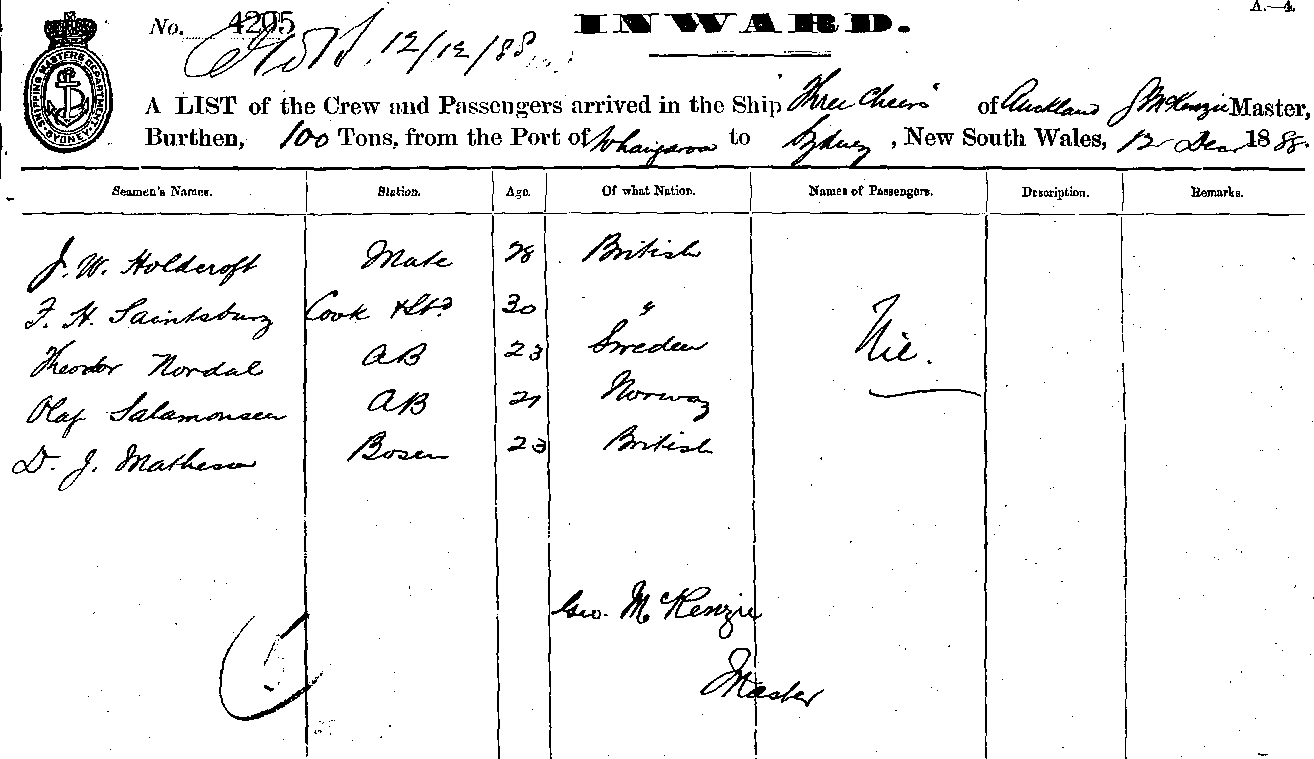 A.—4.
No. 4295 INWARD.
12/12/88
SHIPPING MASTERS DEPARTMENT SYDNEY
A LIST of the Crew and Passengers arrived in the Ship Three Cheers of Auckland McKenzie Master,
Burthen, 100 Tons, from the Port of Whangaroa to Sydney, New South Wales, 12 Decr 1888.
Seamen's Names. Station. Age. Of what Nation. Names of Passengers. Description. Remarks.
J. W. Holdcroft Mate 28 British
F. H. Saintsbury Cook & St? 30 "
Theodor Nordal AB 23 Sweden Nil.
Olaf Salamonsen AB 21 Norway
D. J. Matheson Bosen 23 British
Geo. McKenzie
Master